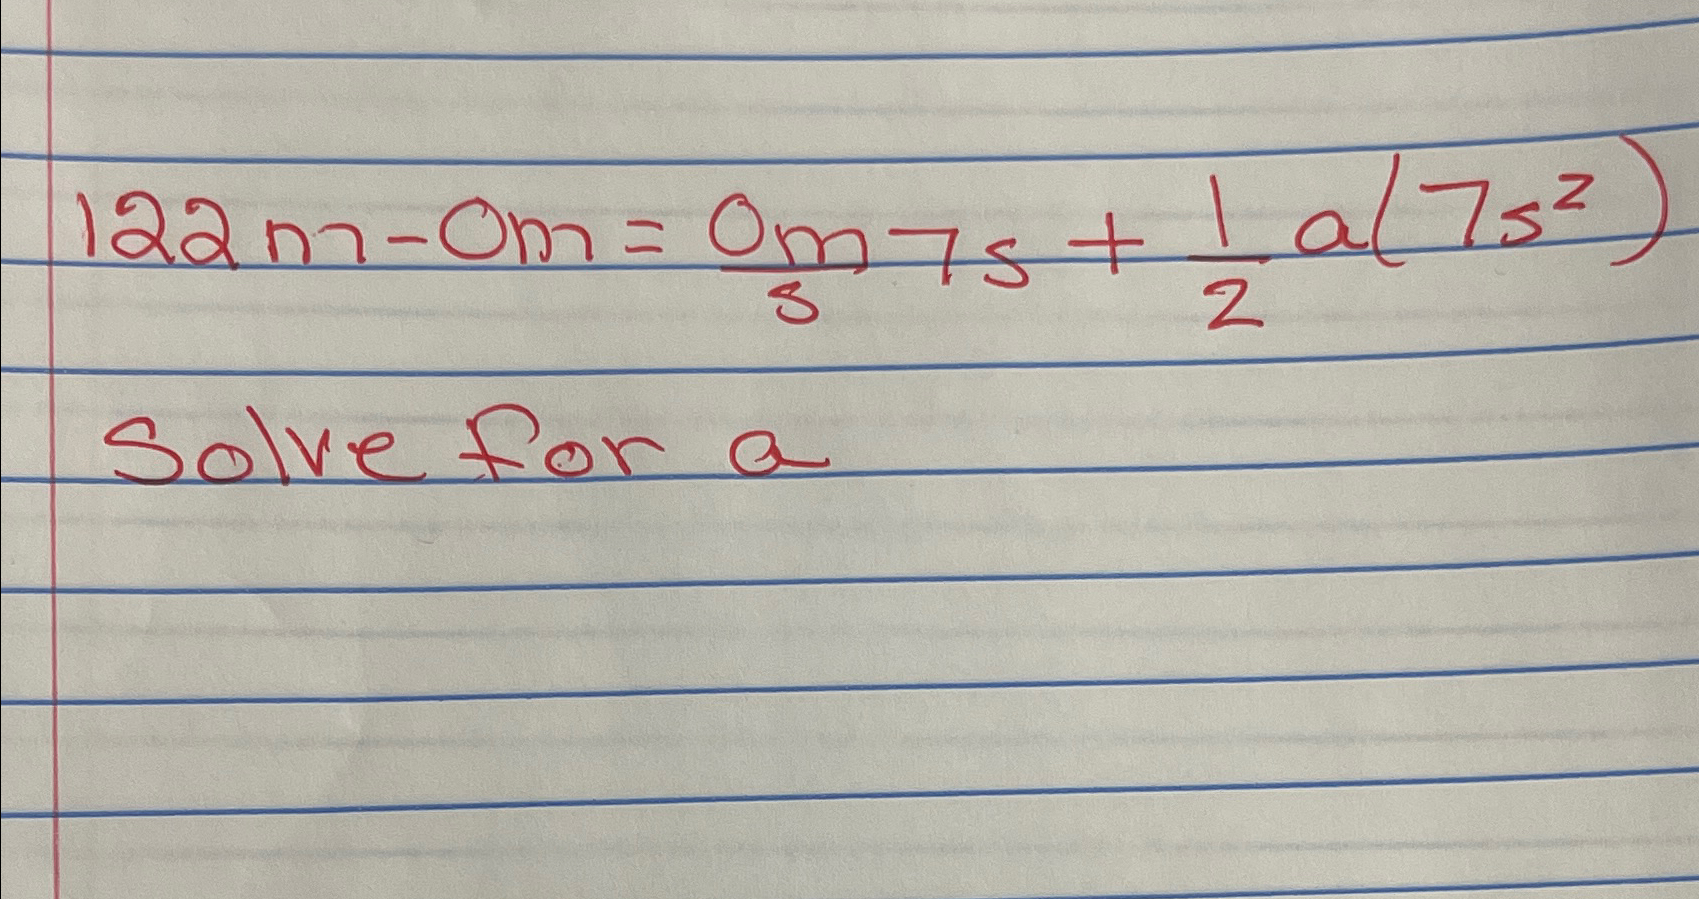 122m-0m = 0m/s 7s + 1/2 a(7s²)
Solve for a